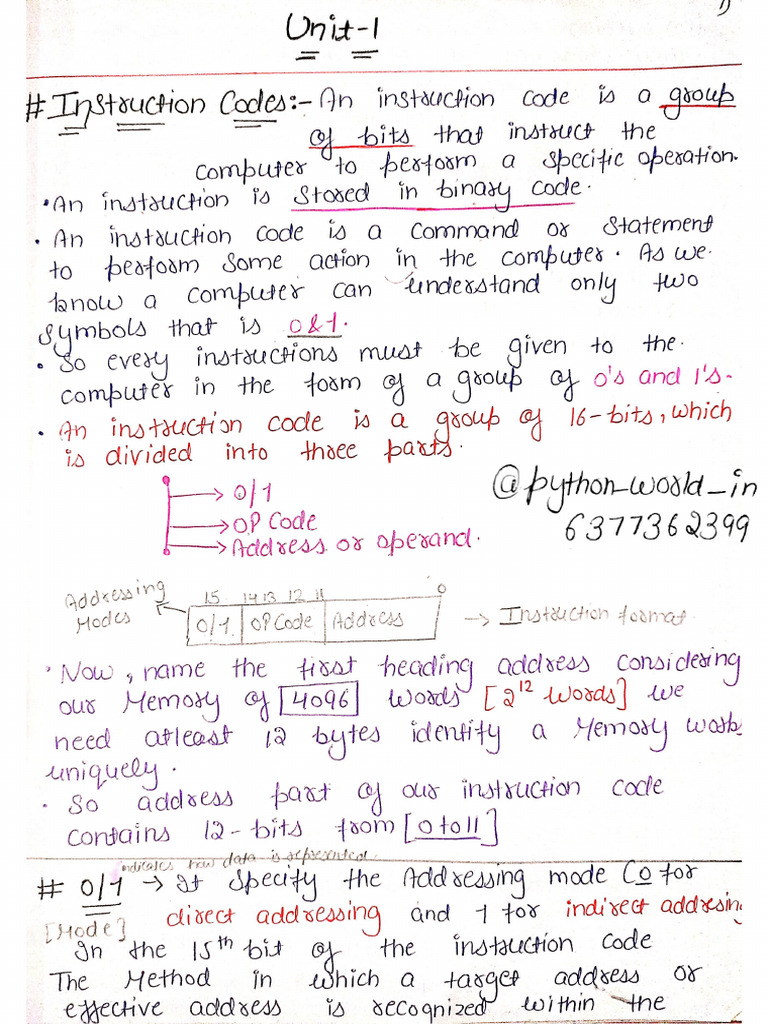 1)
Unit-1
# Instruction Codes:- An instruction code is a group
of bits that instruct the
computer to perform a specific operation.
• An instruction is stored in binary code.
• An instruction code is a command or statement
to perform some action in the computer. As we
know a computer can understand only two
symbols that is 0&1.
• So every instructions must be given to the.
computer in the form of a group of 0's and 1's.
• An instruction code is a group of 16-bits, which
is divided into three parts.
→ 0/1
→ OP Code
→ Address or operand.
@python_world_in
6377362399
Addressing Modes
15 14 13 12 11 0
0/1 OP Code Address → Instruction format
• Now, name the first heading address considering
our Memory of 4096 words [2^12 words] we
need atleast 12 bytes identify a Memory
uniquely.
• So address part of our instruction code
contains 12-bits from [0 to 11]
indicates how data is represented.
# 0/1 → It specify the Addressing mode Co for
[Mode] direct addressing and 1 for indirect addresing
In the 15th bit of the instruction code
The Method in which a target address or
effective address is recognized within the